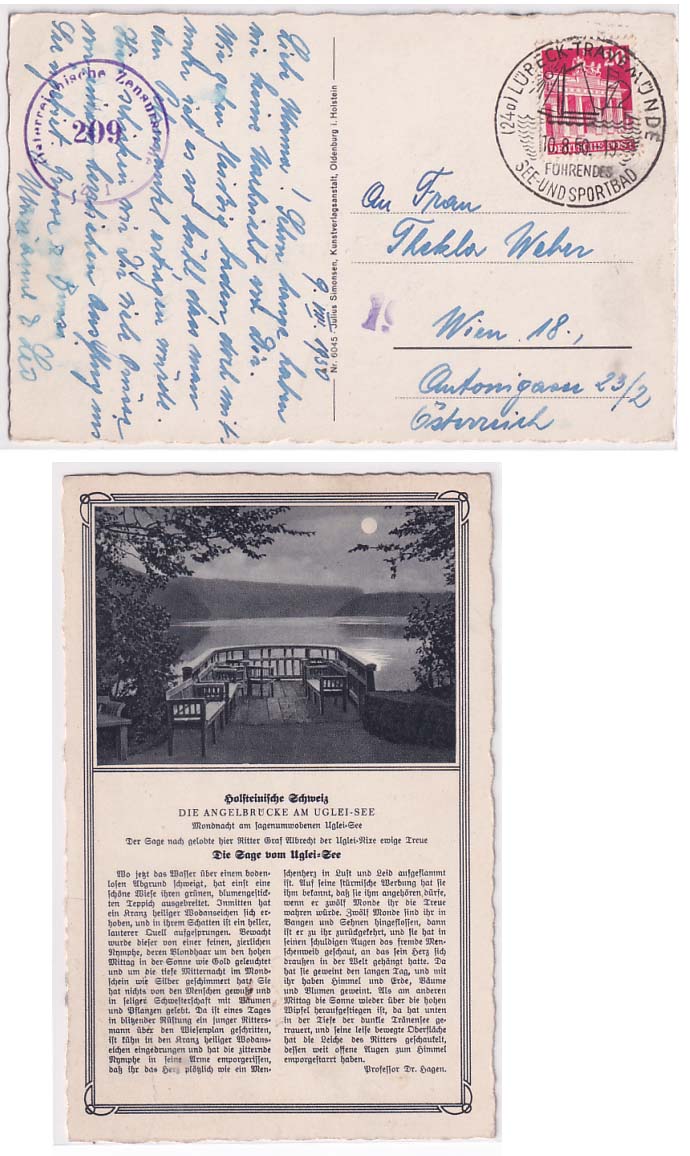 9. VIII. 1950
Liebe Mama! Schon lange haben
wir keine Nachricht von Dir.
Wir gehen fleißig baden, doch
nicht
Österreichische Zensurstelle
209
Nr. 6045 · Julius Simonsen, Kunstverlagsanstalt, Oldenburg i. Holstein
20
DEUTSCHE POST
(24a) LÜBECK-TRAVEMÜNDE
10.8.50.-19
FÜHRENDES
SEE-UND SPORTBAD
An Frau
Thekla Weber
Wien 18.,
Antonigasse 23/2
Österreich
Holsteinische Schweiz
DIE ANGELBRÜCKE AM UGLEI-SEE
Mondnacht am sagenumwobenen Uglei-See
Der Sage nach gelobte hier Ritter Graf Albrecht der Uglei-Nixe ewige Treue
Die Sage vom Uglei-See
Wo jetzt das Wasser über einem boden-
losen Abgrund schweigt, hat einst eine
schöne Wiese ihren grünen, blumengestick-
ten Teppich ausgebreitet. Inmitten hat
ein Kranz heiliger Wodanseichen sich er-
hoben, und in ihrem Schatten ist ein heller,
lauterer Quell aufgesprungen. Bewacht
wurde dieser von einer feinen, zierlichen
Nymphe, deren Blondhaar um den hohen
Mittag in der Sonne wie Gold geleuchtet
und um die tiefe Mitternacht im Mond-
schein wie Silber geschimmert hat. Sie
hat nichts von den Menschen gewußt und
in seliger Schwesterschaft mit Bäumen
und Pflanzen gelebt. Da ist eines Tages
in blitzender Rüstung ein junger Ritters-
mann über den Wiesenplan geschritten,
ist kühn in den Kranz heiliger Wodans-
eichen eingedrungen und hat die zitternde
Nymphe in seine Arme emporgerissen,
daß ihr das Herz plötzlich wie ein Men-
schenherz in Lust und Leid aufgeflammt
ist. Auf seine stürmische Werbung hat sie
ihm bekannt, daß sie ihm angehören dürfe,
wenn er zwölf Monde ihr die Treue
wahren würde. Zwölf Monde sind ihr in
Bangen und Sehnen hingeflossen, dann
ist er zu ihr zurückgekehrt, und sie hat in
seinen schuldigen Augen das fremde Men-
schenweib geschaut, an das sein Herz sich
draußen in der Welt gehängt hatte. Da
hat sie geweint den langen Tag, und mit
ihr haben Himmel und Erde, Bäume
und Blumen geweint. Als am anderen
Mittag die Sonne wieder über die hohen
Wipfel heraufgestiegen ist, da hat unten
in der Tiefe der dunkle Tränensee ge-
trauert, und seine leise bewegte Oberfläche
hat die Leiche des Ritters geschaukelt,
dessen weit offene Augen zum Himmel
emporgestarrt haben.
Professor Dr. Hagen.